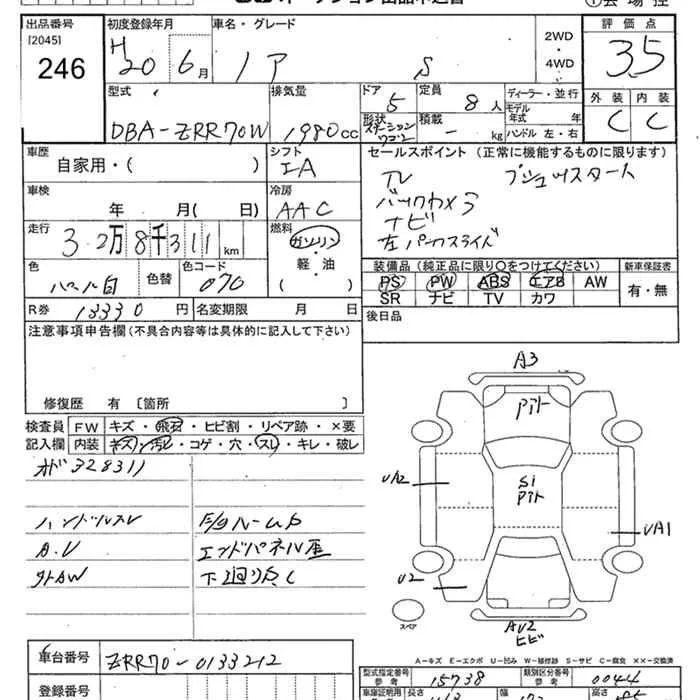 出品番号 初度登録年月 車名・グレード 評価点
[2045]
246 H20 6月 ノア S 2WD・4WD 3.5
型式 排気量 ドア 定員 ディーラー・並行 外装 内装
DBA-ZRR70W 1980cc 5 8人 モデル年式 年 C C
形状 ステーションワゴン 積載 - kg ハンドル 左・右
車歴 シフト セールスポイント (正常に機能するものに限ります)
自家用・( ) IA TV プッシュスタート
車検 冷房 バックカメラ
年 月( 日) AAC ナビ
走行 燃料 左パワースライド
3.2万8千311km ガソリン・軽・油( )
色 色替 色コード 装備品(純正品に限り○をつけてください) 新車保証書
パール白 070 PS PW ABS エアB AW 有・無
SR ナビ TV カワ
R券 13330円 名変期限 月 日 後日品
注意事項申告欄(不具合内容等は具体的に記入して下さい)
修復歴 有 〔箇所 〕
検査員 FW キズ・飛石・ヒビ割・リペア跡・×要
記入欄 内装 キズ・汚レ・コゲ・穴・スレ・キレ・破レ
オド328311
ハンドルスレ F/Gルームク
A.V エンドパネル歪
外AW 下廻りサビ C
A3
アト
UA2 Si アト UA1
U2
スペア AU2 ヒビ
A-キズ E-エクボ U-凹み W-補修跡 S-サビ C-腐食 ××-交換済
車台番号 ZRR70-0133212
型式指定番号 参考 15738 類別区分番号 参考 0044
登録番号